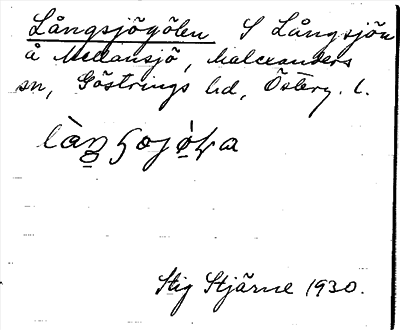 Långsjögölen S Långsjön
å Mellansjö, Malexanders
sn, Göstrings hd, Österg. l.
Stig Stjärne 1930.